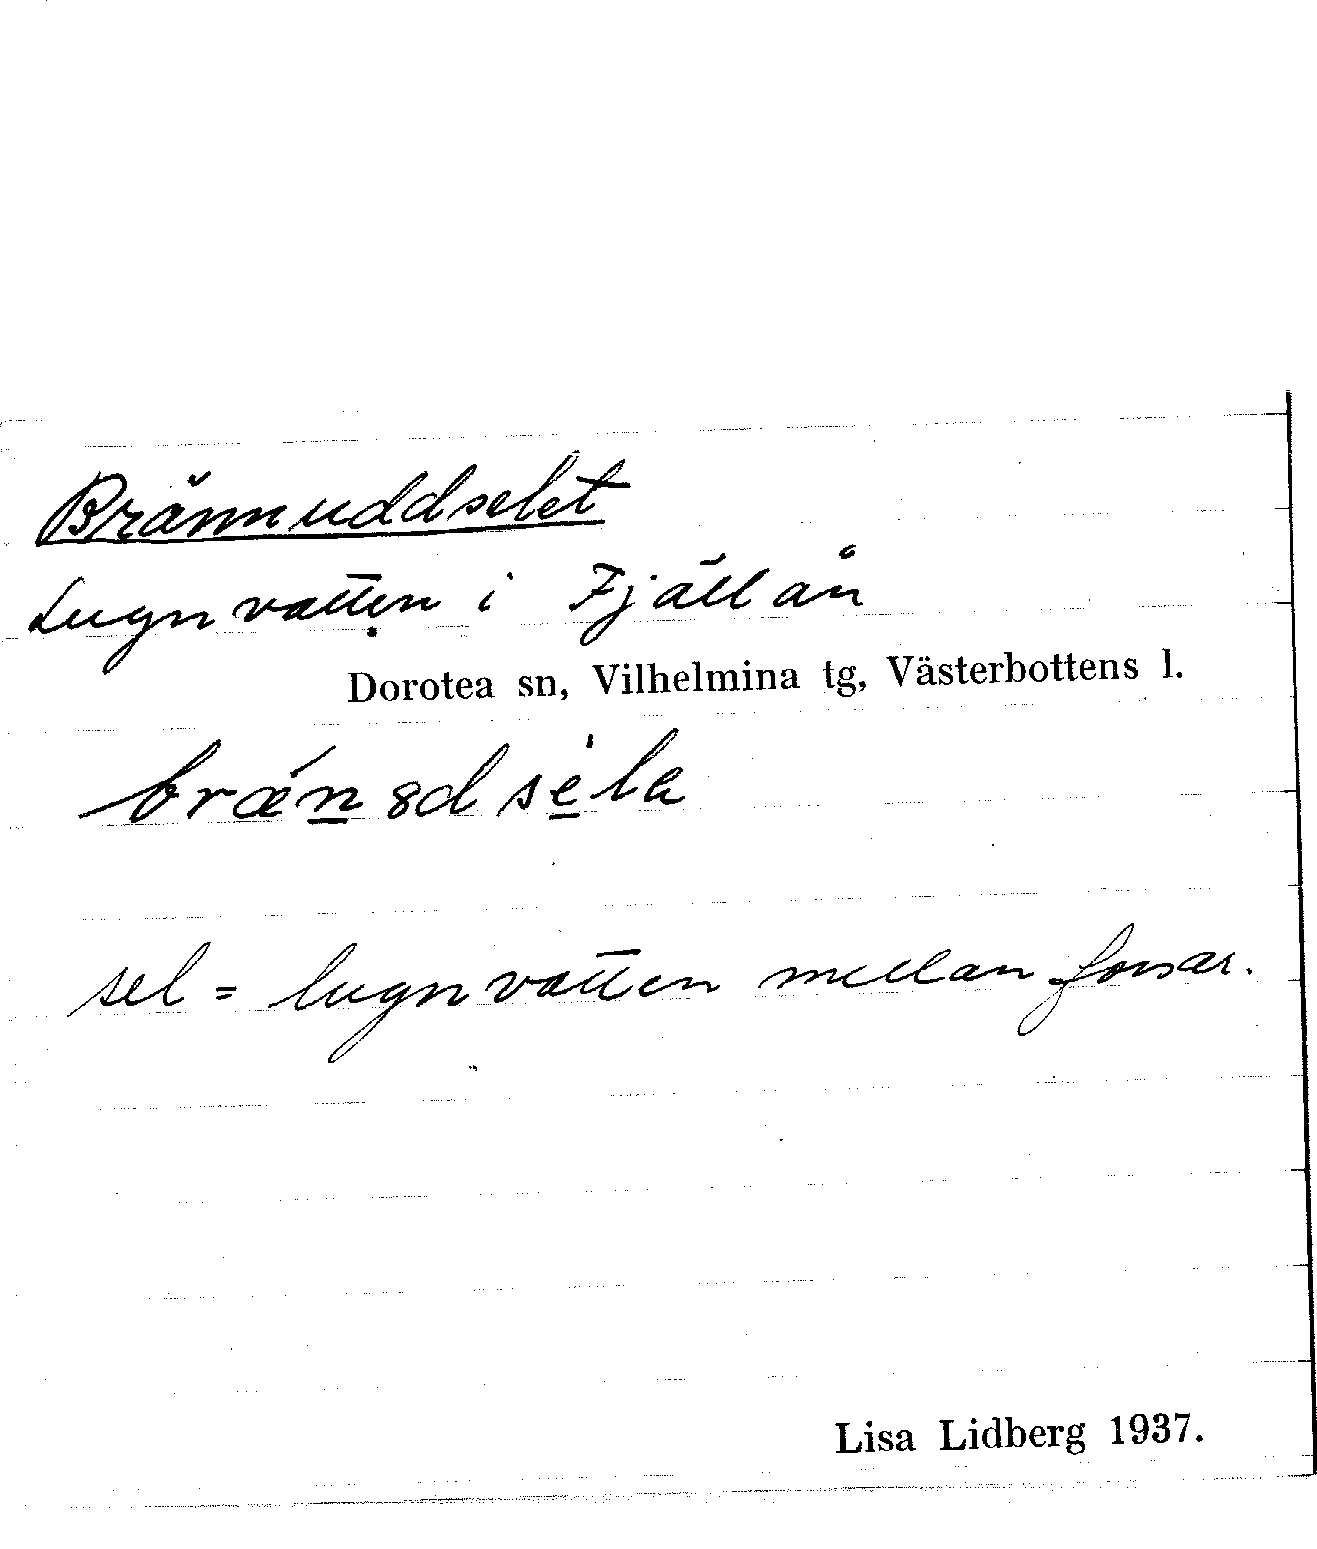 Brännuddselet
Lugnvatten i Fjällån
Dorotea sn, Vilhelmina tg, Västerbottens l.
brǽn̲8dse̲̍la
sel = lugnvatten mellan forsar.
Lisa Lidberg 1937.